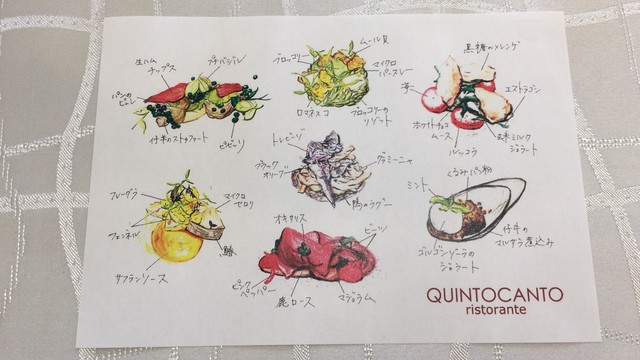 生ハム
チップス
プチバジル
パンの
ピュレ
仔羊のストゥファート
ピゼリーニ
ブロッコリー
ムール貝
マイクロ
パースレー
ロマネスコ
ブロッコリーの
リゾット
黒糖のメレンゲ
苺
エストラゴン
ホワイトチョコ
ムース
ルッコラ
玄米ミルク
ジェラート
トレビーゾ
ブラック
オリーブ
グラミーニャ
鴨のラグー
フレーグラ
マイクロ
セロリ
フェンネル
鰆
サフランソース
オキサリス
ビーツ
ピンク
ペッパー
鹿ロース
マジョラム
くるみパン粉
ミント
仔牛の
マルサラ煮込み
ゴルゴンゾーラの
ジェラート
QUINTOCANTO
ristorante